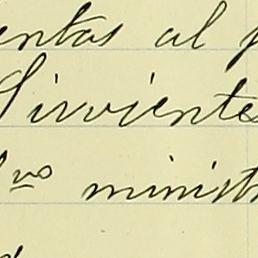 entas al p
Sirvientes
vo minist